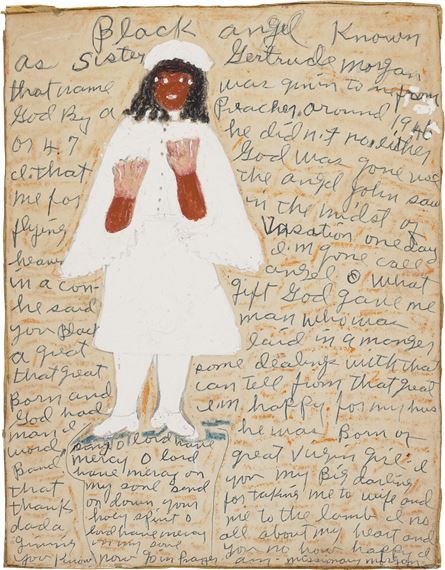 Black angel Known
as Sister Gertrude morgan
that name was givin to me from
God By a Preacher, around 1946
or 47 he did not no, either
that God was gone use
me for the angel John saw
flying in the midst of
heaven
in a con- Vasation one day
he said i'm gone call
you Black angel what
a great gift God gave me
that great man who was
Born and laid in a manger
God had some dealings with that
man i can tell from that great
word, i'm happy for my hus
Band he was Born of
that great Virgin Girl i
thank you my Big darling
dada for taking me to wife and
giving me to the lamb i no
you Know all about my heart and
you no how happy i
am. missionary morgan
O lord have
mercy O lord
have mercy on
my soul send
on down your
holy spirit O
lord have mercy
on my soul
now go in Prayer